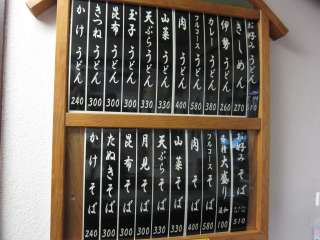 お好み うどん 510
きしめん 270
伊勢うどん 260
カレーうどん 380
フルコースうどん 580
肉うどん 400
山菜うどん 330
天ぷらうどん 330
玉子うどん 300
昆布うどん 300
きつねうどん 300
かけうどん 240
お好み そば 510
大盛り 100
フルコースそば 580
肉そば 400
山菜そば 330
天ぷらそば 330
月見そば 300
昆布そば 300
たぬきそば 300
かけそば 240